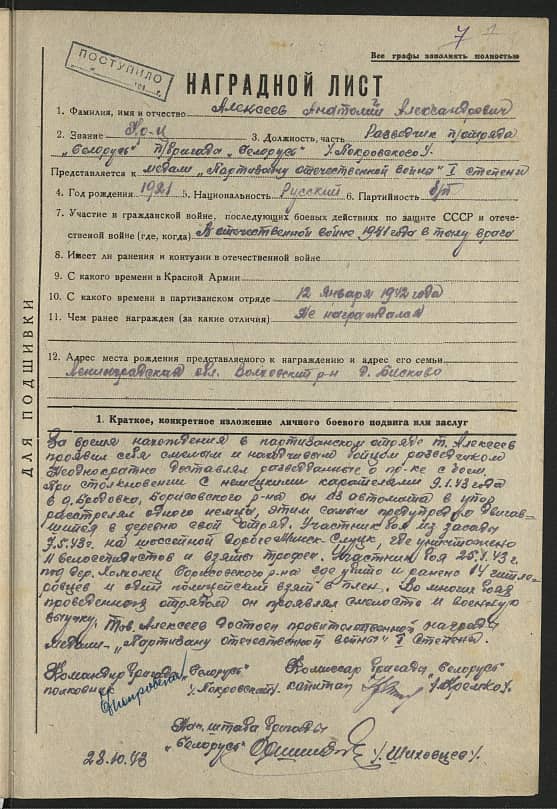 7
Все графы заполнять полностью
ПОСТУПИЛО
НАГРАДНОЙ ЛИСТ
1. Фамилия, имя и отчество Алексеев Анатолий Александрович
2. Звание 3. Должность, часть Разведчик п/отряда
„Беларусь" п/бригада „Беларусь" /Покровского/.
Представляется к медали „Партизану отечественной войны" I степени
4. Год рождения 1921 5. Национальность Русский 6. Партийность б/п
7. Участие в гражданской войне, последующих боевых действиях по защите СССР и отече-
ственной войне (где, когда) В отечественной войне 1941 года в тылу врага
8. Имеет ли ранения и контузии в отечественной войне
9. С какого времени в Красной Армии
10. С какого времени в партизанском отряде 12 января 1942 года
11. Чем ранее награжден (за какие отличия) Не награждался
12. Адрес места рождения представляемого к награждению и адрес его семьи
Ленинградская обл. Волховский р-н д.
ДЛЯ ПОДШИВКИ
1. Краткое, конкретное изложение личного боевого подвига или заслуг
За время нахождения в партизанском отряде т. Алексеев
проявил себя смелым и находчивым бойцом разведчиком
Неоднократно доставлял разведданные о пр-ке с
При столкновении с немецкими карателями 9.1.43 года
в д. Бродовка, Борисовского р-на он из автомата в упор
расстрелял одного немца, этим самым предупредил двигав-
шийся в деревню свой отряд. Участник боя из засады
7.5.43г. на шоссейной дороге Минск Слуцк, где уничтожено
11 велосипедистов и взяты трофеи. Участник боя 25.1.43 г.
под дер. Борисовского р-на где убито и ранено 14 гитле-
ровцев и один полицейский взят в плен. Во многих боях
проведенных отрядом он проявлял смелость и военную
выучку. Тов. Алексеев достоен правительственной награды
медали - „Партизану отечественной войны" I степени.
Командир бригады „Беларусь" Комиссар бригады „Беларусь"
полковник /Покровский/. капитан
Нач. штаба бригады
„Беларусь" /Шиховцев/.
28.10.43